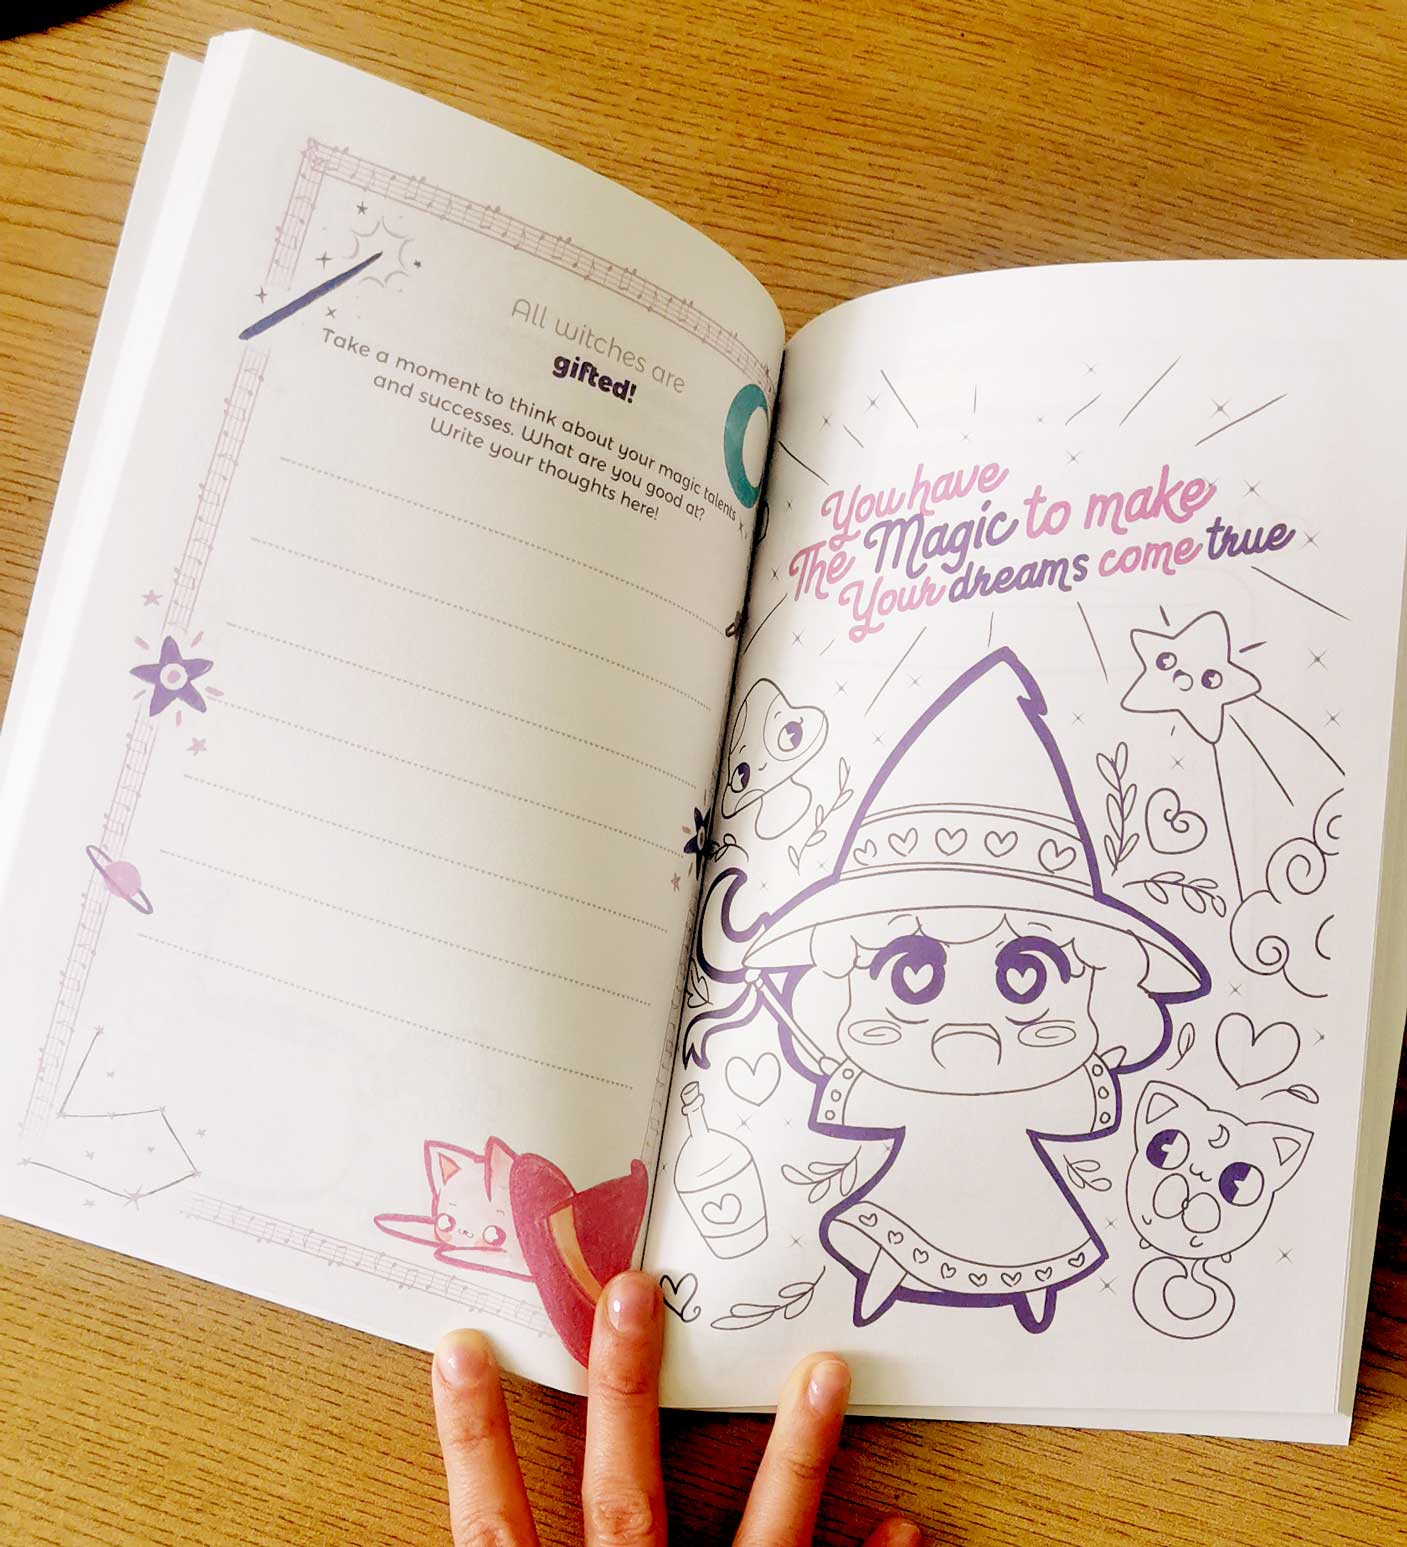 All witches are
gifted!
Take a moment to think about your magic talents
and successes. What are you good at?
Write your thoughts here!
You have
The Magic to make
Your dreams come true